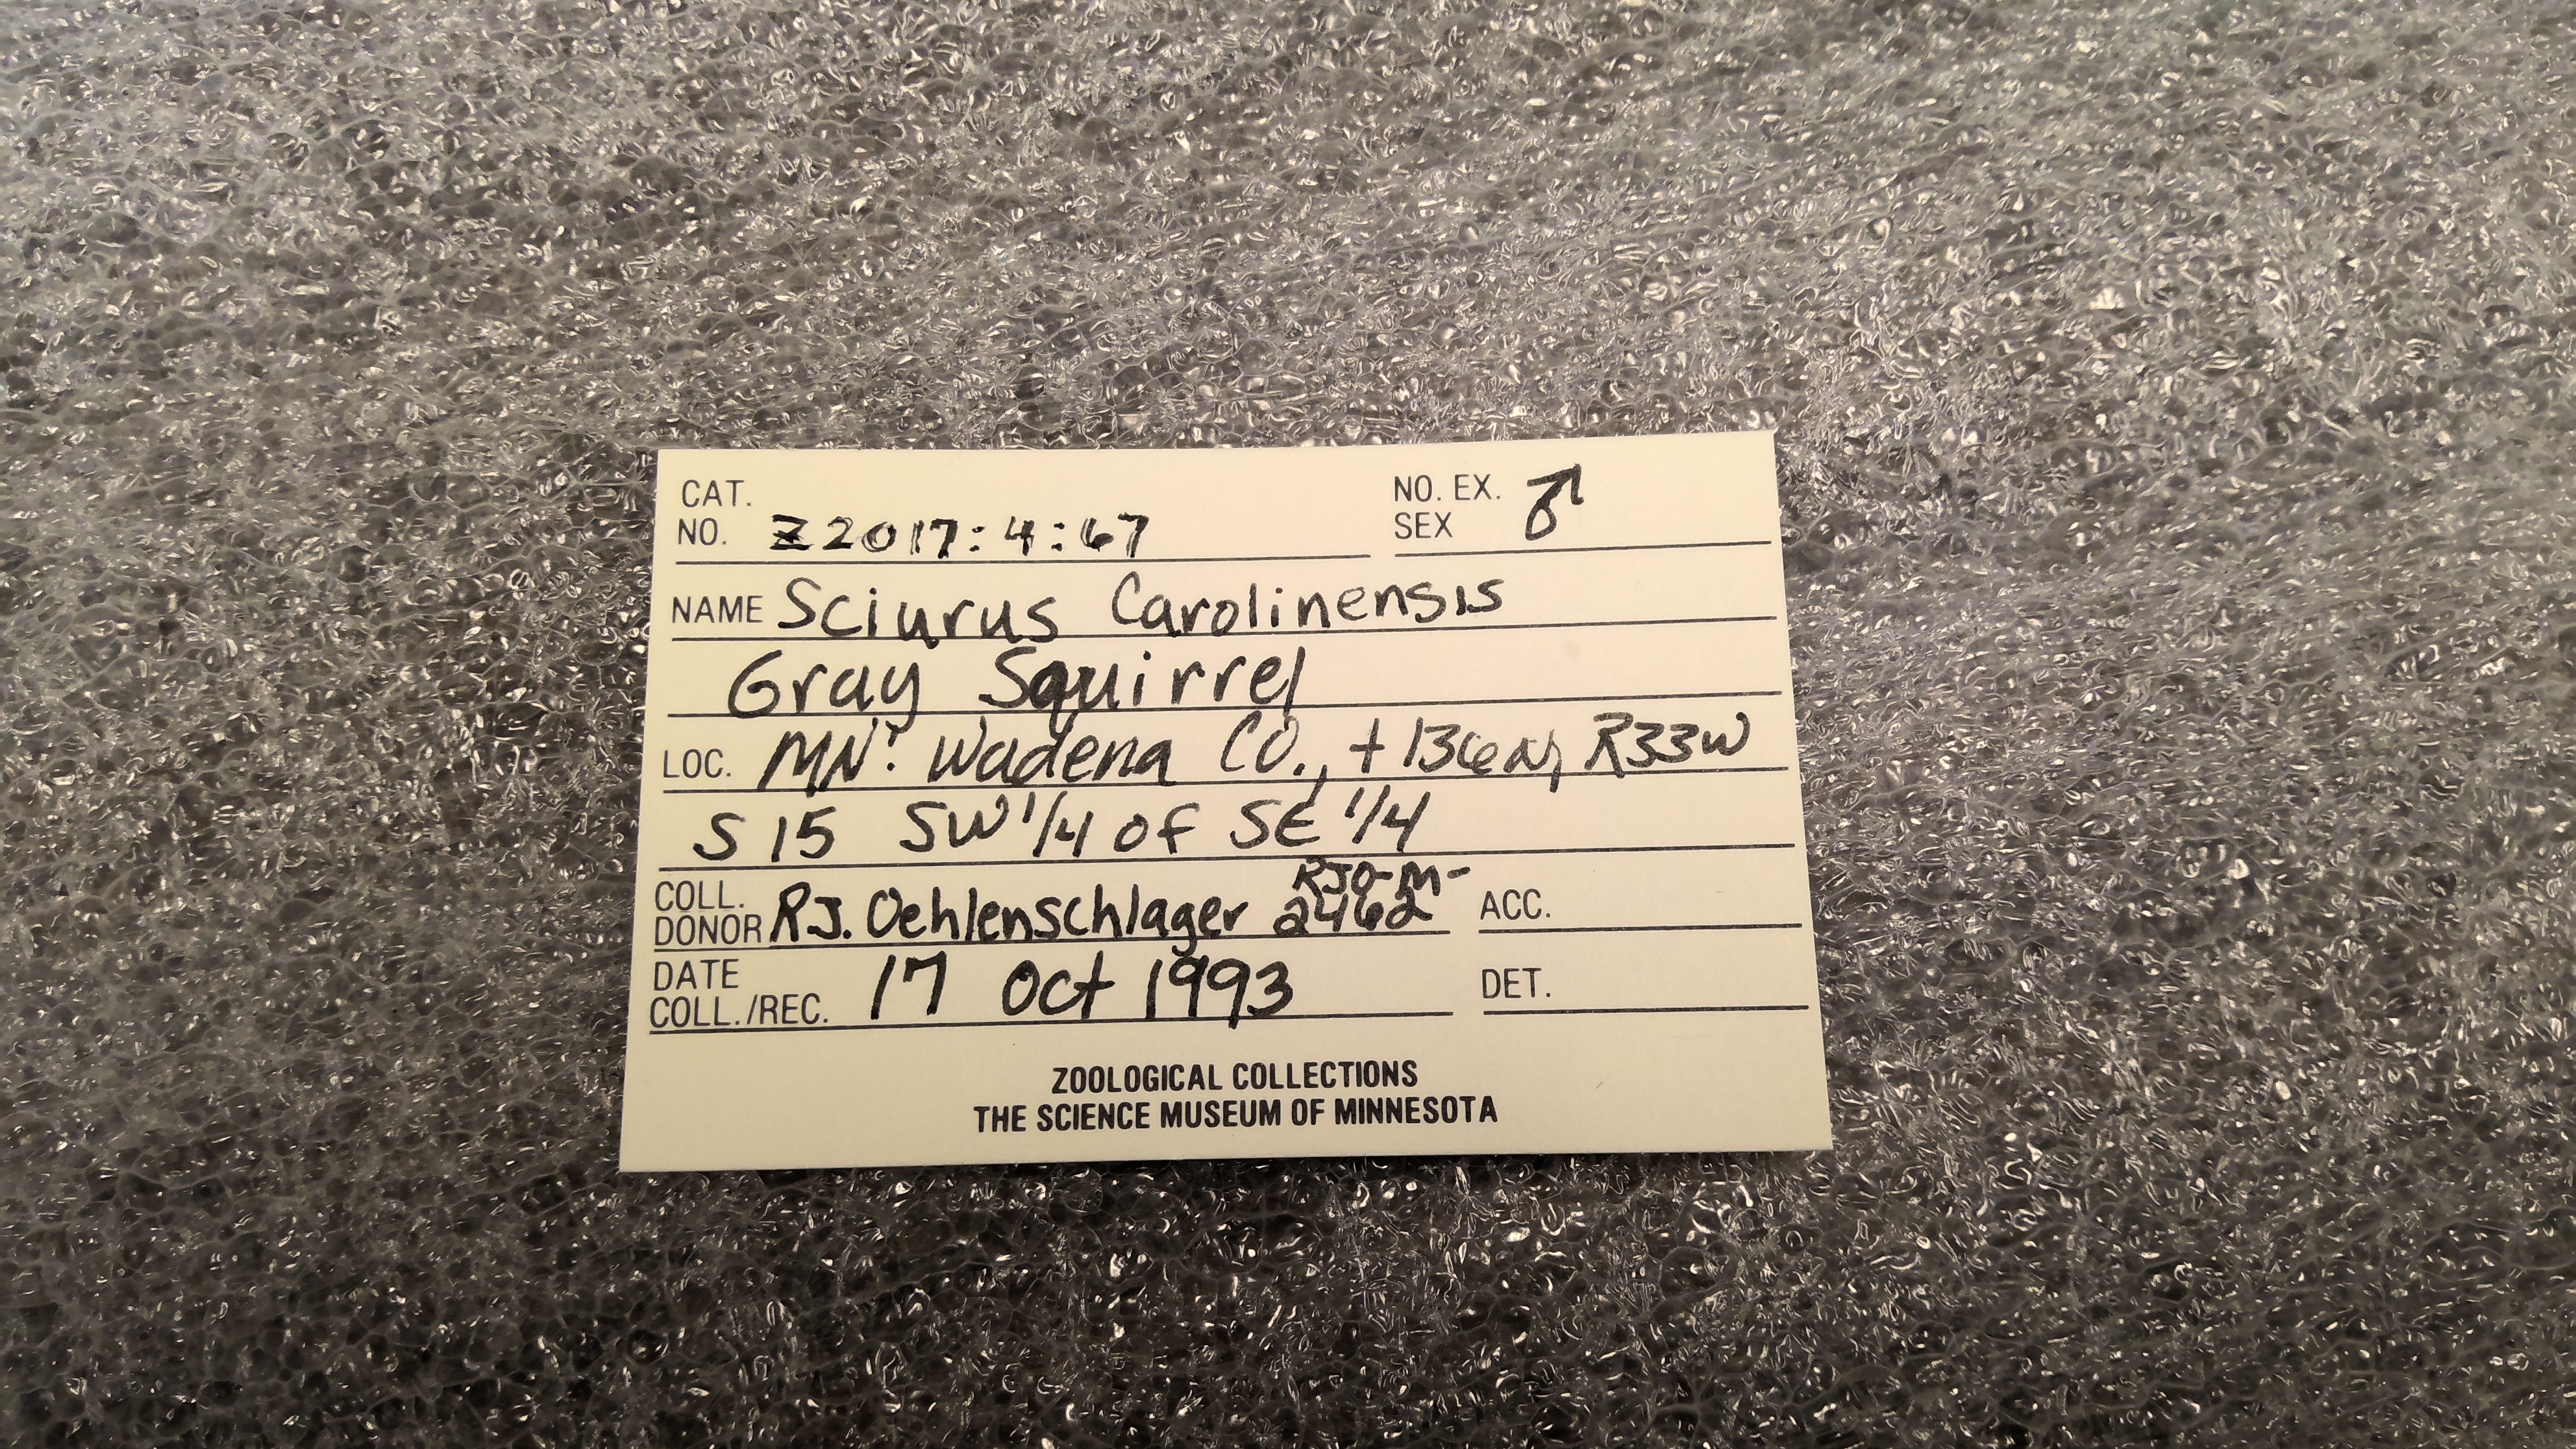 CAT. NO. EX. ♂
NO. Z2017:4:67 SEX
NAME Sciurus Carolinensis
Gray Squirrel
LOC. MN: Wadena CO., t136N, R33W
S 15 SW 1/4 of SE 1/4
COLL. RJO-M-
DONOR RJ. Oehlenschlager 2462 ACC.
DATE
COLL./REC. 17 Oct 1993 DET.
ZOOLOGICAL COLLECTIONS
THE SCIENCE MUSEUM OF MINNESOTA